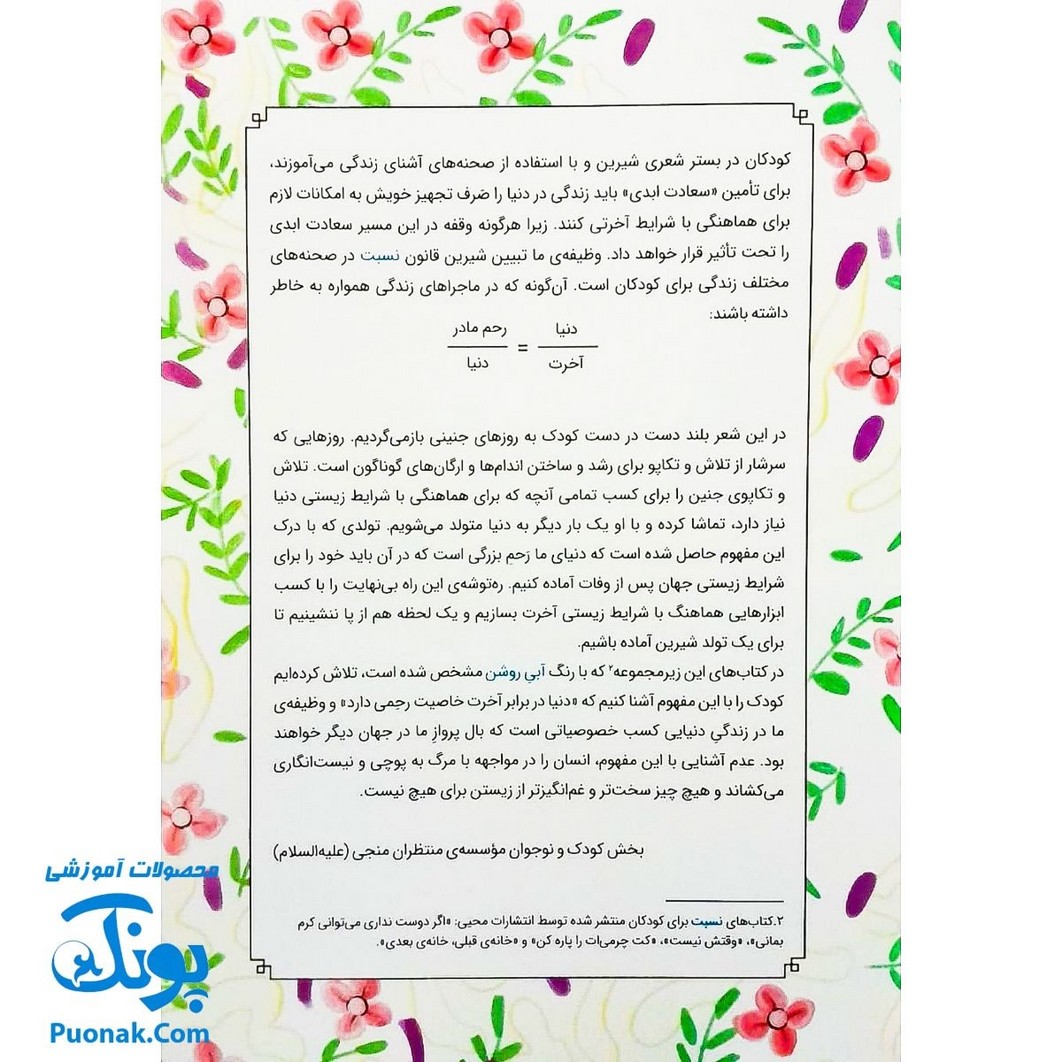 کودکان در بستر شعری شیرین و با استفاده از صحنه‌های آشنای زندگی می‌آموزند،
برای تأمین «سعادت ابدی» باید زندگی در دنیا را صَرف تجهیز خویش به امکانات لازم
برای هماهنگی با شرایط آخرتی کنند. زیرا هرگونه وقفه در این مسیر سعادت ابدی
را تحت تأثیر قرار خواهد داد. وظیفه‌ی ما تبیین شیرین قانون نسبت در صحنه‌های
مختلف زندگی برای کودکان است. آن‌گونه که در ماجراهای زندگی همواره به خاطر
داشته باشند:
دنیا / آخرت = رحم مادر / دنیا
در این شعر بلند دست در دست کودک به روزهای جنینی بازمی‌گردیم. روزهایی که
سرشار از تلاش و تکاپو برای رشد و ساختن اندام‌ها و ارگان‌های گوناگون است. تلاش
و تکاپوی جنین را برای کسب تمامی آنچه که برای هماهنگی با شرایط زیستی دنیا
نیاز دارد، تماشا کرده و با او یک بار دیگر به دنیا متولد می‌شویم. تولدی که با درک
این مفهوم حاصل شده است که دنیای ما رَحمِ بزرگی است که در آن باید خود را برای
شرایط زیستی جهان پس از وفات آماده کنیم. ره‌توشه‌ی این راه بی‌نهایت را با کسب
ابزارهایی هماهنگ با شرایط زیستی آخرت بسازیم و یک لحظه هم از پا ننشینیم تا
برای یک تولد شیرین آماده باشیم.
در کتاب‌های این زیرمجموعه۲ که با رنگ آبیِ روشن مشخص شده است، تلاش کرده‌ایم
کودک را با این مفهوم آشنا کنیم که «دنیا در برابر آخرت خاصیت رحمی دارد» و وظیفه‌ی
ما در زندگیِ دنیایی کسب خصوصیاتی است که بال پروازِ ما در جهان دیگر خواهند
بود. عدم آشنایی با این مفهوم، انسان را در مواجهه با مرگ به پوچی و نیست‌انگاری
می‌کشاند و هیچ چیز سخت‌تر و غم‌انگیزتر از زیستن برای هیچ نیست.
بخش کودک و نوجوان مؤسسه‌ی منتظران منجی (علیه‌السلام)
۲.کتاب‌های نسبت برای کودکان منتشر شده توسط انتشارات محیی: «اگر دوست نداری می‌توانی کرم
بمانی»، «وقتش نیست»، «کت چرمی‌ات را پاره کن» و «خانه‌ی قبلی، خانه‌ی بعدی».
محصولات آموزشی
پونک
Puonak.Com